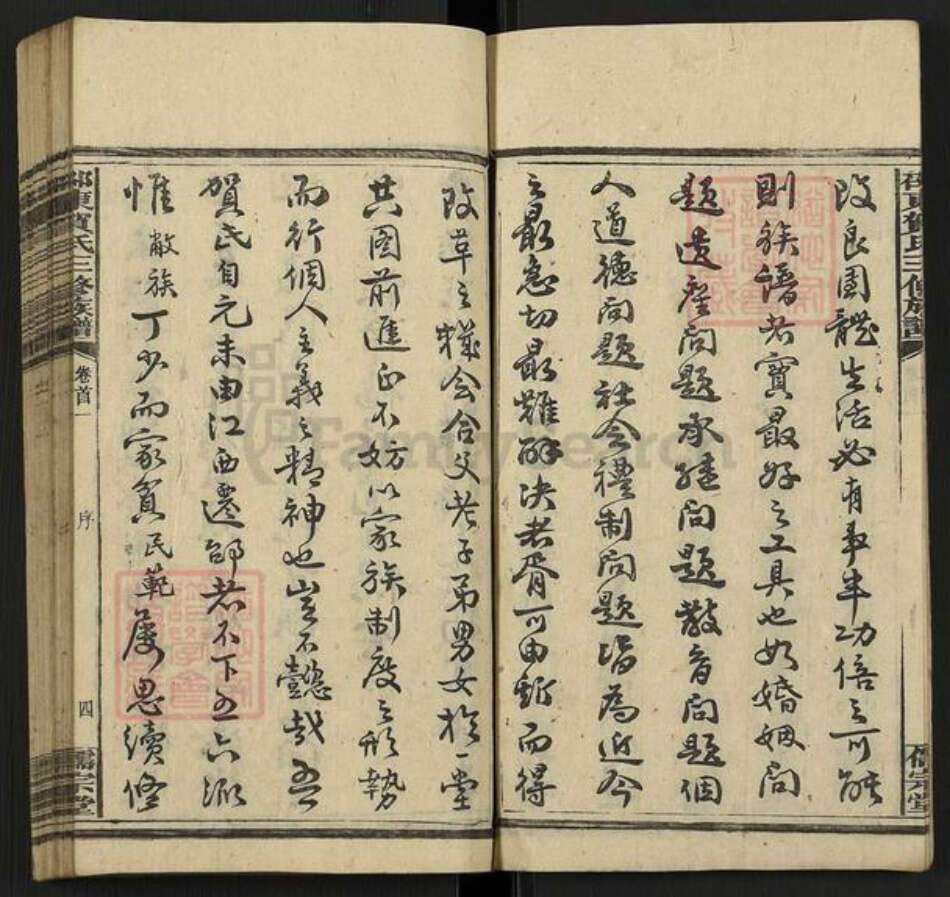 改良團體生活必有事半功倍之可能
則族譜者實最好之工具也如婚姻問
題遺產問題承繼問題教育問題個
人道德問題社會禮制問題皆為近今
之最急切最難解決者胥可由斯而得
改革之機會合父老子弟男女於一堂
共圖前進正不妨以家族制度之形勢
而行個人主義之精神也豈不懿哉吾
賀氏自元末由江西遷邵者不下五六派
惟敝族丁少而家貧民範屢思續修
邵東賀氏三修族譜
卷首一
序
四
儒宗堂
FamilySearch